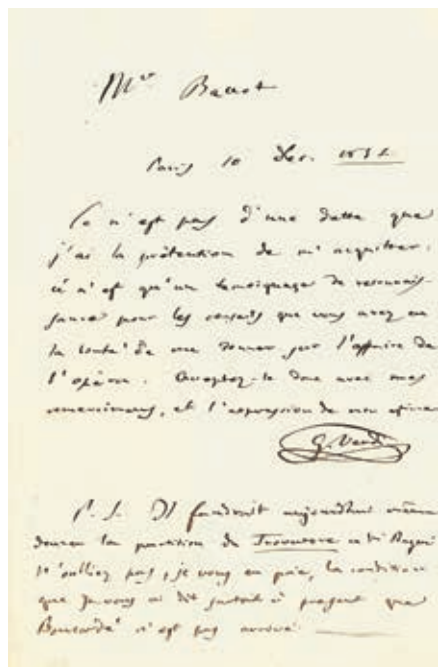 Mr Bacot
Paris 10 Dec.
Ce n'est pas d'une dette que
j'ai la prétention de m'acquiter,
ce n'est qu'un temoignage de reconnais-
sance pour les conseils que vous avez eu
la bonté de me donner sur l'affaire de
l'opéra. Acceptez-le donc avec mes
remerciments, et l'expression de mon estime
G. Verdi
P.S. Il faudrait aujourd'hui même
donner la partition du Trovatore
N'oubliez pas, je vous en prie, la condition
que je vous ai dit surtout à present que
n'est pas arrivé